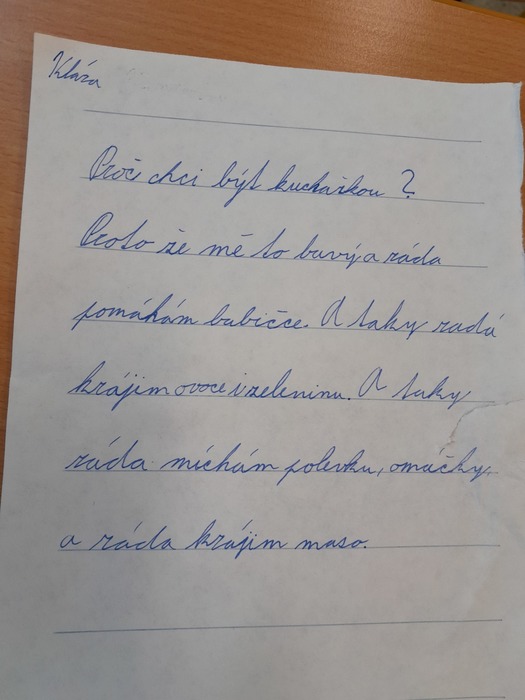 Klára
Proč chci být kuchařkou?
Proto že mě to bavý a ráda
pomáhám babičce. A taky radá
krájim ovoce i zeleninu. A taky
ráda míchám polevku, omáčky,
a ráda krájim maso.